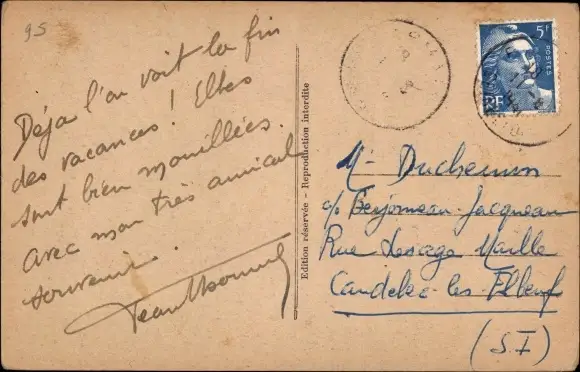 95
Déjà l'on voit la fin
des vacances ! Elles
sont bien mouillées.
avec mon très amical
souvenir.
Edition réservée - Reproduction interdite
5F
POSTES
RF
Mr Duchemin
c/o Jacqueau
Rue Lesage Maille
Caudebec-les-Elbeuf
(S.I)